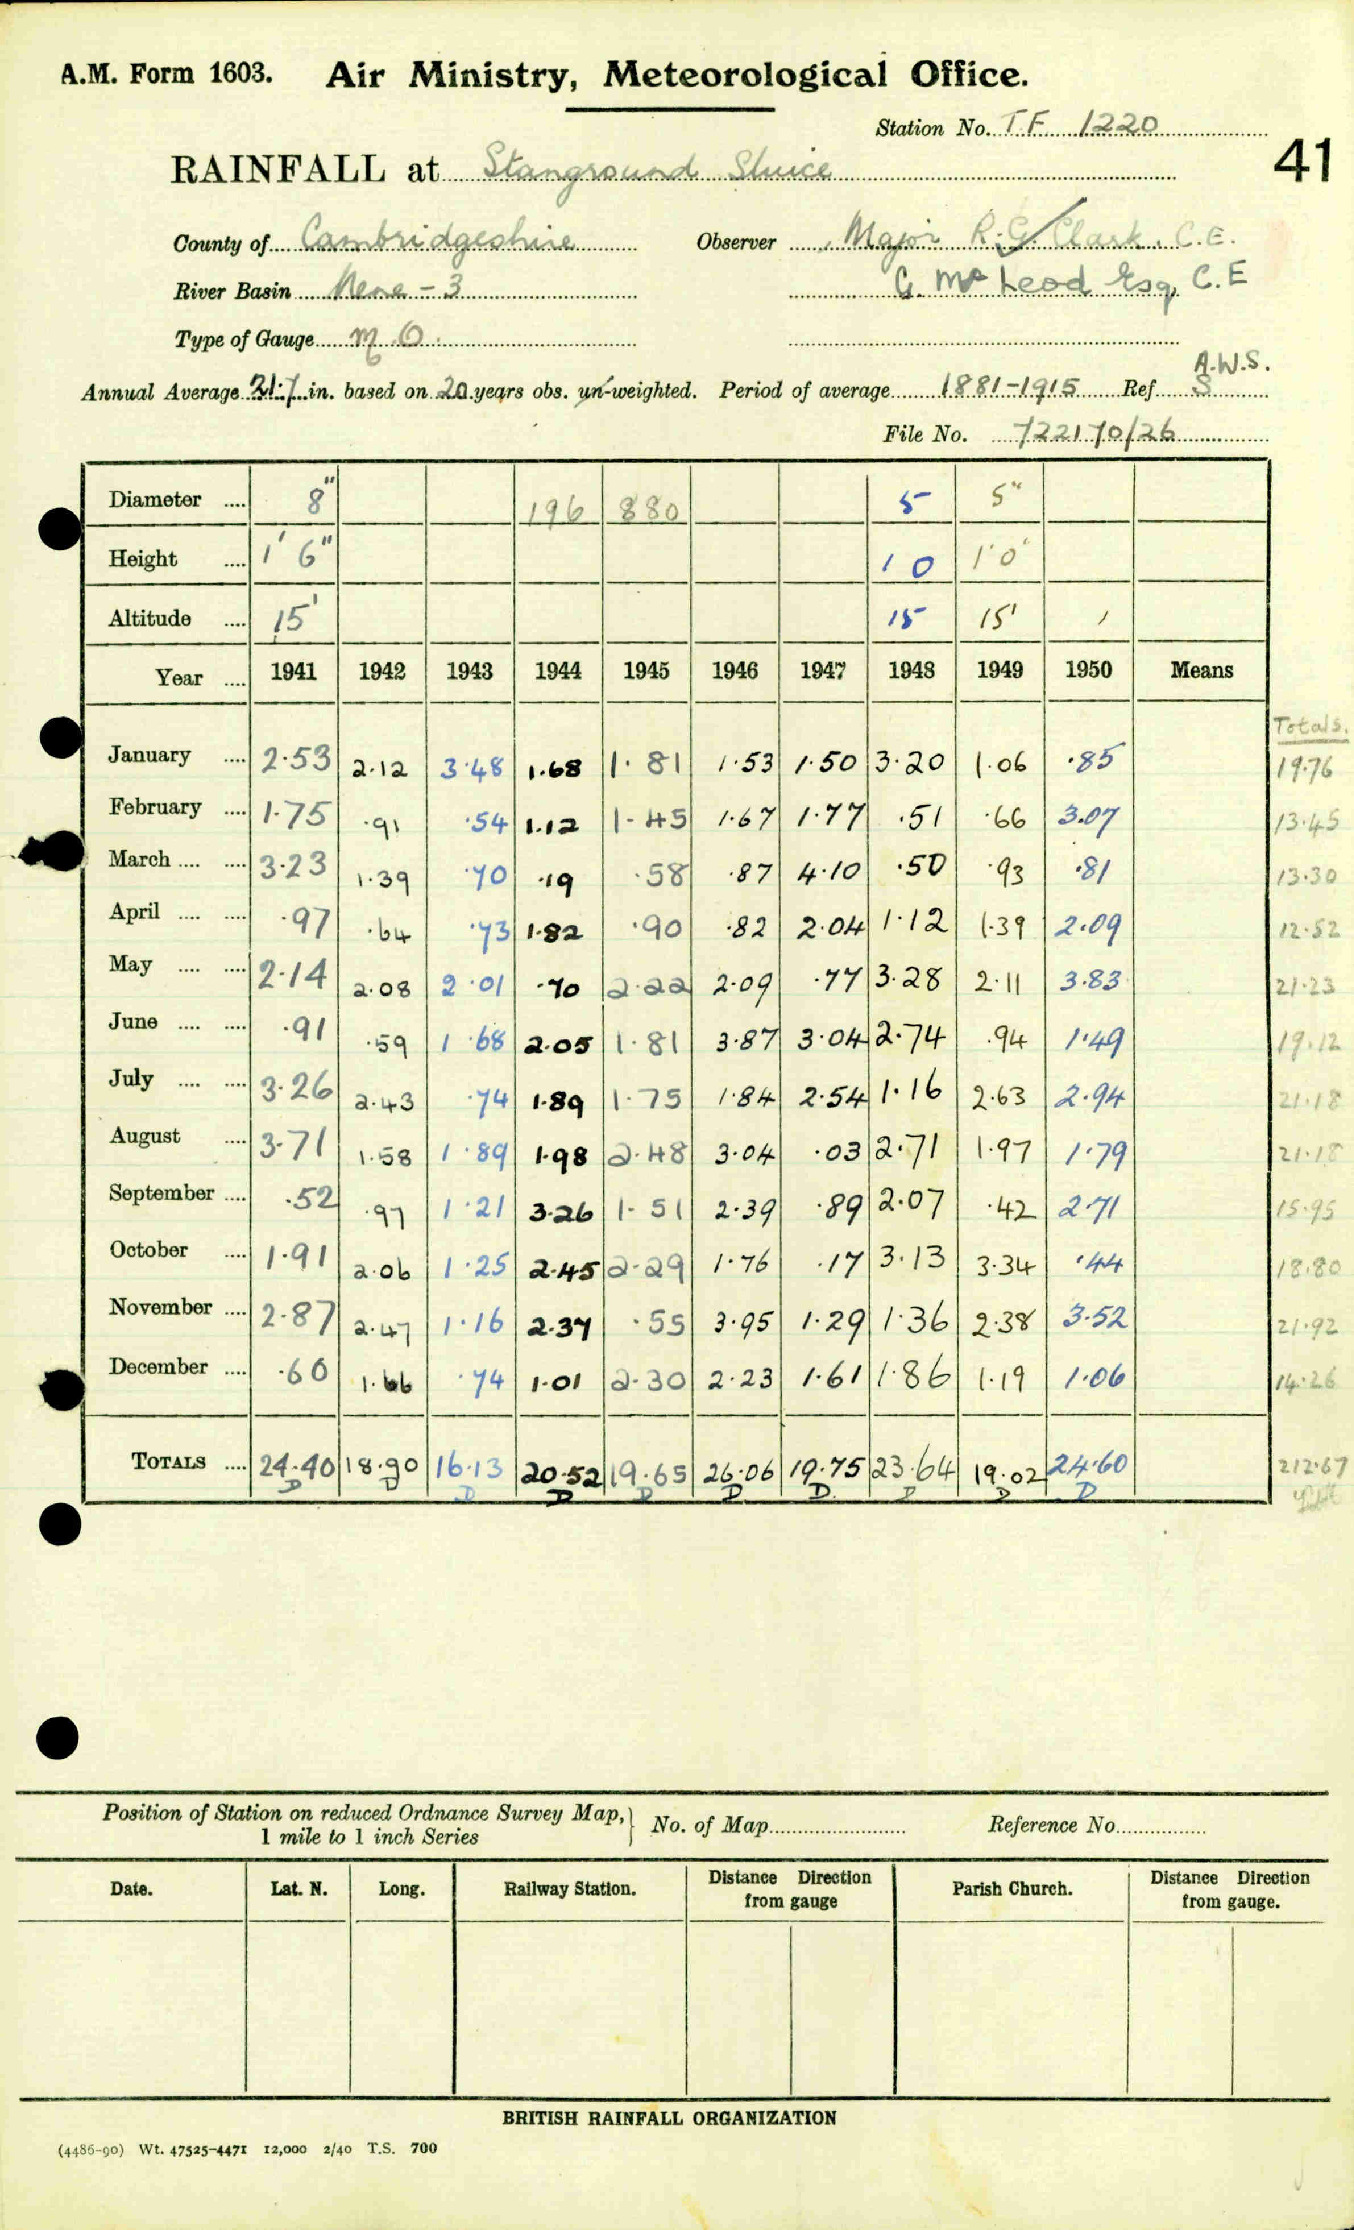 A.M. Form 1603. Air Ministry, Meteorological Office.
Station No. TF 1220
41
RAINFALL at Stanground Sluice
County of Cambridgeshire Observer Major R.G. Clark. C.E.
River Basin Nene - 3 G. Mc Leod Esq, C.E
Type of Gauge M.O.
A.W.S.
Annual Average 21.7 in. based on 20 years obs. un-weighted. Period of average 1881-1915 Ref S
File No. 722170/26
Diameter .... 8" 196 880 5 5"
Height .... 1' 6" 1 0 1'0"
Altitude .... 15' 15 15' /
Year .... 1941 1942 1943 1944 1945 1946 1947 1948 1949 1950 Means
Totals.
January .... 2.53 2.12 3.48 1.68 1.81 1.53 1.50 3.20 1.06 .85 19.76
February .... 1.75 .91 .54 1.12 1.45 1.67 1.77 .51 .66 3.07 13.45
March .... .... 3.23 1.39 .70 .19 .58 .87 4.10 .50 .93 .81 13.30
April .... .... .97 .64 .73 1.82 .90 .82 2.04 1.12 1.39 2.09 12.52
May .... .... 2.14 2.08 2.01 .70 2.22 2.09 .77 3.28 2.11 3.83 21.23
June .... .... .91 .59 1.68 2.05 1.81 3.87 3.04 2.74 .94 1.49 19.12
July .... .... 3.26 2.43 .74 1.89 1.75 1.84 2.54 1.16 2.63 2.94 21.18
August .... 3.71 1.58 1.89 1.98 2.48 3.04 .03 2.71 1.97 1.79 21.18
September .... .52 .97 1.21 3.26 1.51 2.39 .89 2.07 .42 2.71 15.95
October .... 1.91 2.06 1.25 2.45 2.29 1.76 .17 3.13 3.34 .44 18.80
November .... 2.87 2.47 1.16 2.37 .55 3.95 1.29 1.36 2.38 3.52 21.92
December .... .60 1.66 .74 1.01 2.30 2.23 1.61 1.86 1.19 1.06 14.26
TOTALS .... 24.40 18.90 16.13 20.52 19.65 26.06 19.75 23.64 19.02 24.60 212.67
D D D D D D D D D D
Position of Station on reduced Ordnance Survey Map, } No. of Map Reference No.
1 mile to 1 inch Series
Date. Lat. N. Long. Railway Station. Distance Direction from gauge Parish Church. Distance Direction from gauge.
BRITISH RAINFALL ORGANIZATION
(4486-90) Wt. 47525-4471 12,000 2/40 T.S. 700